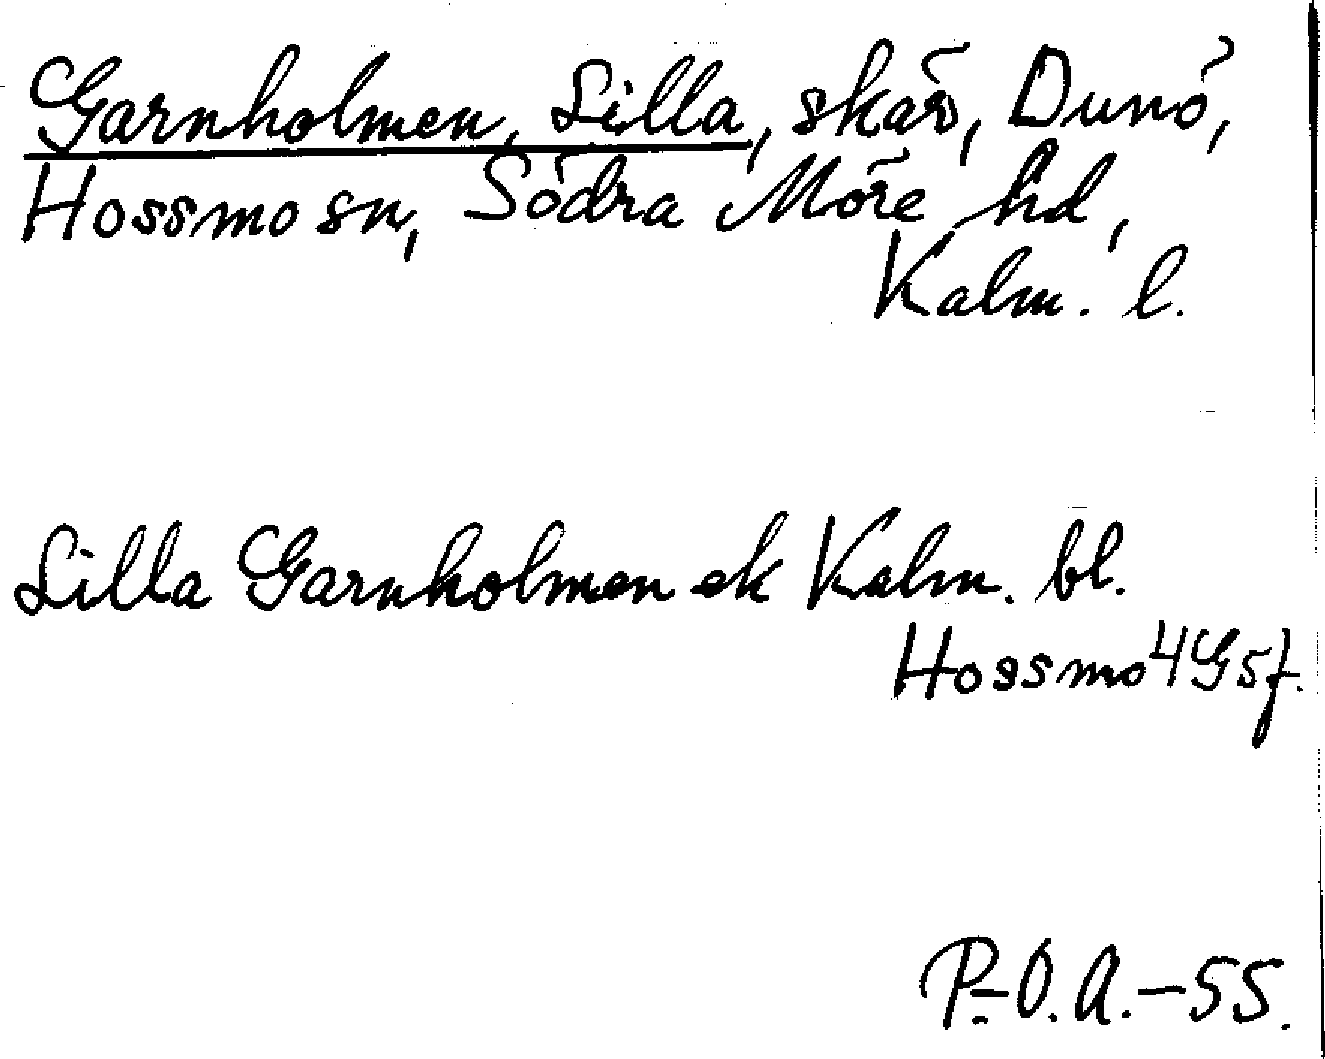 Garnholmen, Lilla, skär, Dunö,
Hossmo sn, Södra Möre hd,
Kalm. l.
Lilla Garnholmen ek Kalm. bl.
Hossmo 4 G5f.
P.-O.A.-55.